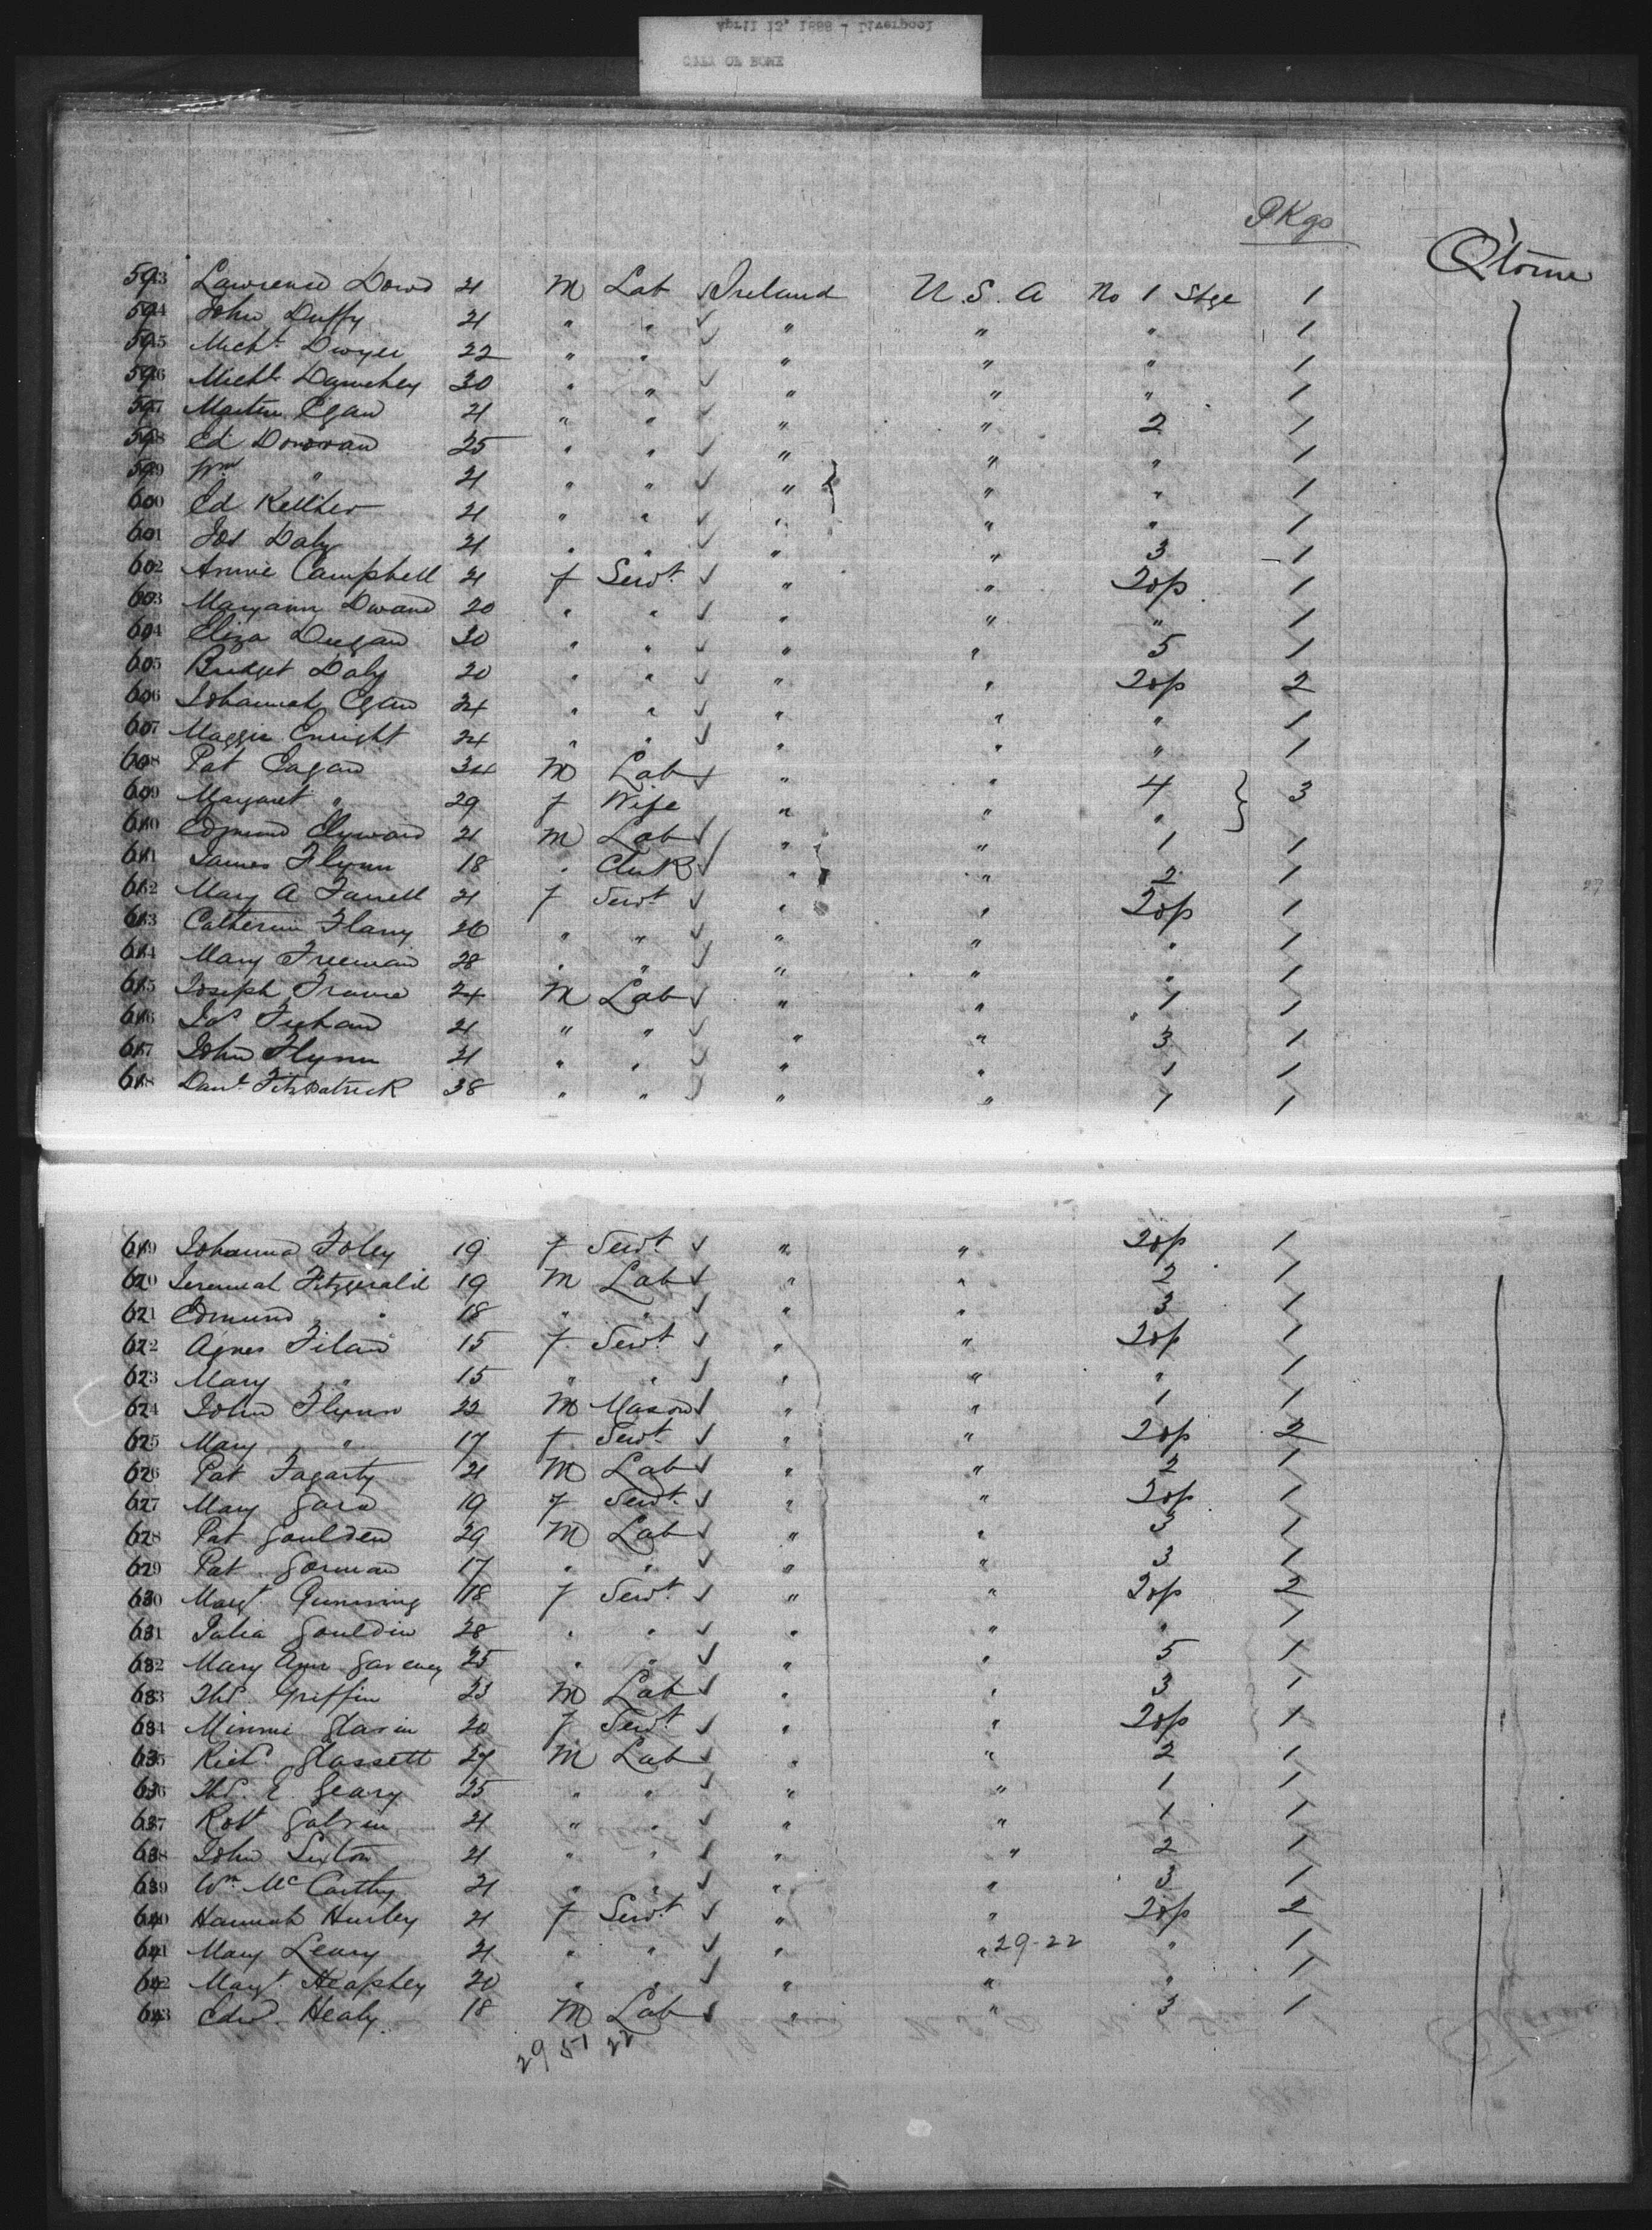 April 13, 1888 - Liverpool
CITY OF ROME
PKgs
Q'town
593 Lawrence Dowd 21 M Lab ✓ Ireland U.S.A No 1 Stge 1
594 John Duffy 21 " " ✓ " " " 1
595 Michl Dwyer 22 " " ✓ " " " 1
596 Michl 30 " " ✓ " " " 1
597 Martin Egan 21 " " ✓ " " 2 1
598 Ed Donovan 25 " " ✓ " " " 1
599 Wm " 21 " " ✓ " " " 1
600 Ed Kelliher 21 " " ✓ " " " 1
601 Jos Daly 21 " " ✓ " " 3 1
602 Annie Campbell 21 f Servt ✓ " " 2op 1
603 Maryann 20 " " ✓ " " " 1
604 Eliza Deegan 30 " " ✓ " " 5 1
605 Bridget Daly 20 " " ✓ " " 2op 2
606 Johannah Egan 24 " " ✓ " " " 1
607 Maggie Enright 24 " " ✓ " " " 1
608 Pat Eagan 34 M Lab ✓ " " 4 } 3
609 Margaret " 29 f Wife " " "
610 Edmund Elyward 21 M Lab ✓ " " 1 1
611 James Flynn 18 " Clerk ✓ " " 2 1
612 Mary A Farrell 21 f Servt ✓ " " 2op 1
613 Catherine Flany 20 " " ✓ " " " 1
614 Mary Freeman 28 " " ✓ " " " 1
615 Joseph 24 M Lab ✓ " " 1 1
616 Jos Feehan 21 " " ✓ " " 3 1
617 John Flynn 21 " " ✓ " " 1 1
618 Danl Fitzpatrick 38 " " ✓ " " 1 1
619 Johanna Foley 19 f Servt ✓ " " 2op 1
620 Jeremiah Fitzgerald 19 M Lab ✓ " " 2 1
621 Edmund " 18 " " ✓ " " 3 1
622 Agnes Filan 15 f Servt ✓ " " 2op 1
623 Mary " 15 " " ✓ " " " 1
624 John Flynn 22 M Mason ✓ " " 1 1
625 Mary " 17 f Servt ✓ " " 2op 2
626 Pat Fagarty 21 M Lab ✓ " " 2 1
627 Mary Gara 19 f Servt ✓ " " 2op 1
628 Pat Goulden 29 M Lab ✓ " " 3 1
629 Pat Gorman 17 " " ✓ " " 3 1
630 Margt Gunning 18 f Servt ✓ " " 2op 2
631 Julia Gouldin 28 " " ✓ " " " 1
632 Mary Ann Garvey 25 " " ✓ " " 5 1
633 Thos Griffin 23 M Lab ✓ " " 3 1
634 Minnie Glavin 20 f Servt ✓ " " 2op 1
635 Richd Glassett 27 M Lab ✓ " " 2 1
636 Thos E Geary 25 " " ✓ " " 1 1
637 Robt Galvin 21 " " ✓ " " 1 1
638 John Sexton 21 " " ✓ " " 2 1
639 Wm McCarthy 21 " " ✓ " " 3 1
640 Hannah Hurley 21 f Servt ✓ " " 2op 2
641 Mary Leary 21 " " ✓ " " 29-22 " 1
642 Margt Heaphey 20 " " ✓ " " " 1
643 Edwd Healy 18 M Lab ✓ " " 3 1
29 51 22